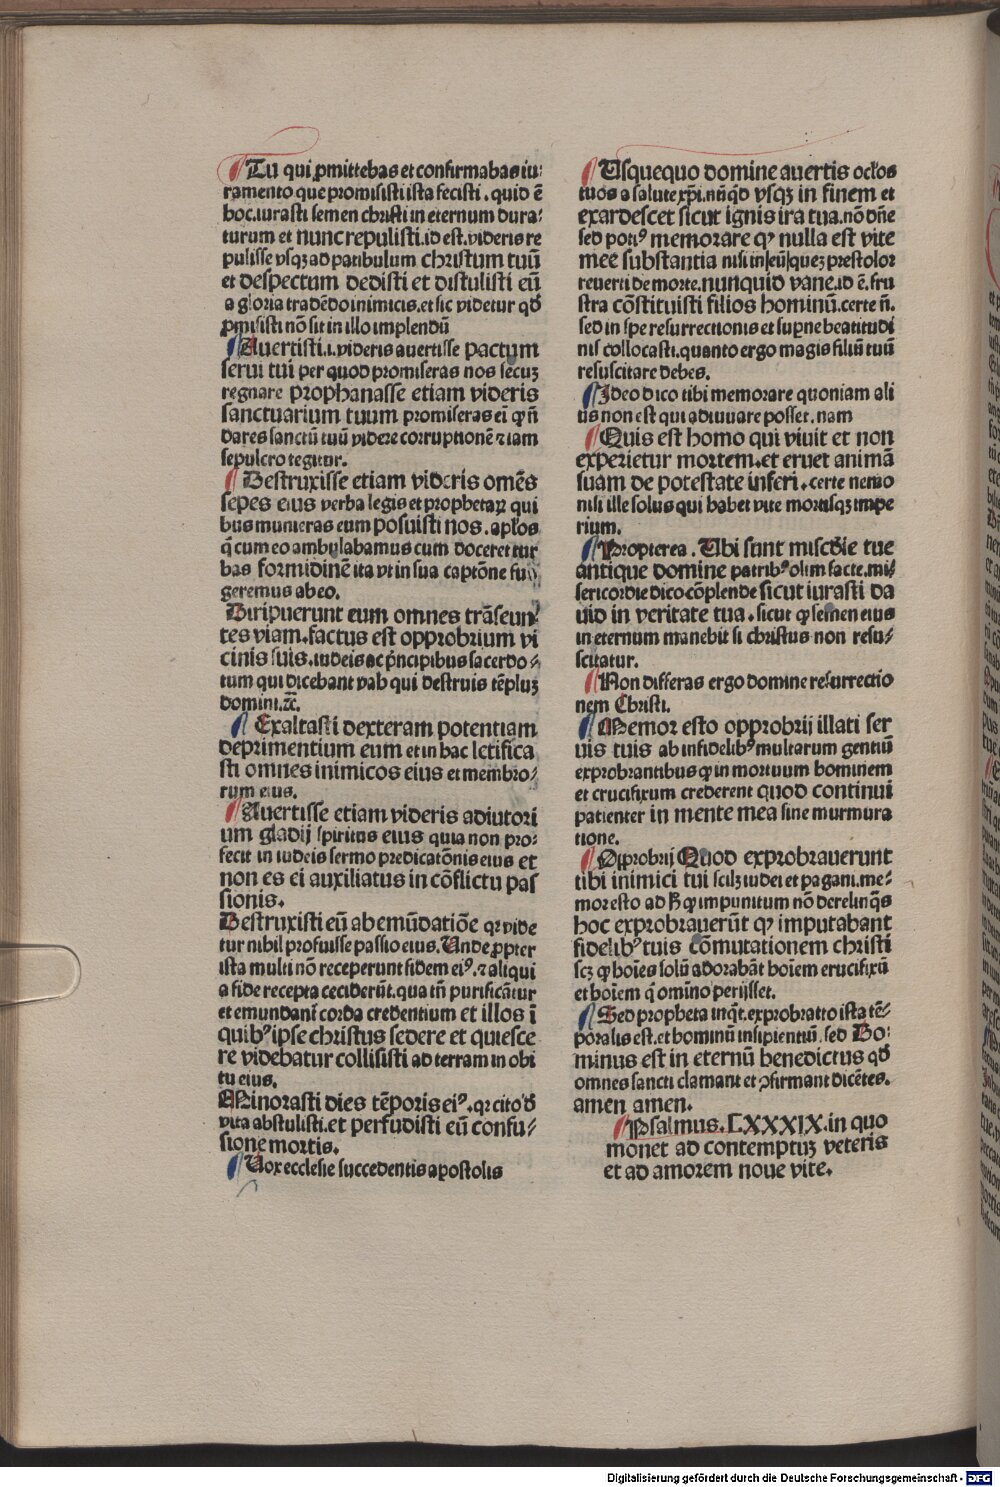 ¶ Tu qui ꝓmittebas et confirmabas iu⸗
ramento que promisisti ista fecisti . quid ē
hoc . iurasti semen christi in eternum dura⸗
turum et nunc repulisti . id est . videris re
pulisse vsqꝫ ad patibulum christum tuū
et despectum dedisti et distulisti eū
a gloria tradēdo inimicis . et sic videtur qđ
ꝓmisisti nō sit in illo implendū
¶ Auertisti . i . videris auertisse pactum
serui tui per quod promiseras nos secuꝫ
regnare prophanasse etiam videris
sanctuarium tuum promiseras ei ꝙ ñ
dares sanctū tuū videre corruptionē ⁊ iam
sepulcro tegitur .
¶ Destruxisse etiam videris omēs
sepes eius verba legis et prophetaꝝ qui
bus munieras eum posuisti nos . aplos
q̄ cum eo ambulabamus cum doceret tur
bas formidinē ita vt in sua captōne fu
geremus ab eo .
Diripuerunt eum omnes trāseun
tes viam . factus est opprobrium vi
cinis suis . iudeis ac p̄ncipibus sacerdo⸗
tum qui dicebant vah qui destruis tēpluꝫ
domini . ⁊c̄ .
¶ Exaltasti dexteram potentiam
deprimentium eum et in hac letifica
sti omnes inimicos eius et membro⸗
rum eius .
¶ Auertisse etiam videris adiutori
um gladij spiritus eius quia non pro⸗
fecit in iudeis sermo predicatōnis eius et
non es ei auxiliatus in cōflictu pas
sionis .
Destruxisti eū ab emūdatiōe qꝛ vide
tur nihil profuisse passio eius . Unde ꝓpter
ista multi nō receperunt fidem eiꝰ . ⁊ aliqui
a fide recepta ceciderūt . qua tñ purificātur
et emundant corda credentium et illos ī
quibꝰ ipse christus sedere et quiesce
re videbatur collisisti ad terram in obi
tu eius .
Minorasti dies tēporis eiꝰ . qꝛ cito ei
vita abstulisti . et perfudisti eū confu⸗
sione mortis .
¶ Uox ecclesie succedentis apostolis
¶ Usquequo domine auertis oclos
tuos a salute xp̄i . nūqđ vsqꝫ in finem et
exardescet sicut ignis ira tua . nō dñe
sed potiꝰ memorare ꝙ nulla est vite
mee substantia nisi in seū quez prestolor
reuerti de morte . nunquid vane . id ē . fru
stra cōstituisti filios hominū . certe ñ .
sed in spe resurrectionis et suꝑne beatitudi
nis collocasti . quanto ergo magis filiū tuū
resuscitare debes .
¶ Ideo dico tibi memorare quoniam ali
us non est qui adiuuare posset . nam
¶ Quis est homo qui viuit et non
experietur mortem . et eruet animā
suam de potestate inferi . certe nemo
nisi ille solus qui habet vite mortisqꝫ impe
rium .
¶ Propterea . Ubi sunt miscdie tue
antique domine patribꝰ olim facte . mi⸗
sericordie dico cōplende sicut iurasti da
uid in veritate tua . sicut ꝙ semen eius
in eternum manebit si christus non resu⸗
scitatur .
¶ Non differas ergo domine resurrectio
nem Christi .
¶ Memor esto opprobrij illati ser
uis tuis ab infidelibꝰ multarum gentiū
exprobrantibus ꝙ in mortuum hominem
et crucifixum crederent quod continui
patienter in mente mea sine murmura
tione .
¶ Opprobrij Quod exprobrauerunt
tibi inimici tui scilꝫ iudei et pagani . me⸗
mor esto ad ꝙ impunitum nō derelinq̄s
hoc exprobrauerūt ꝙ imputabant
fidelibꝰ tuis cōmutationem christi
scꝫ ꝙ hoīes solū adorabāt hoīem crucifixū
et hoīem q̄ omīno perijsset .
¶ Sed propheta inqͥt . exprobratio ista tē⸗
poralis est . et hominū insipientiū . sed Do⸗
minus est in eternū benedictus qđ
omnes sancti clamant et ꝯfirmant dicētes .
amen amen .
¶ Psalmus . LXXXIX . in quo
monet ad contemptuꝫ veteris
et ad amorem noue vite .
Digitalisierung gefördert durch die Deutsche Forschungsgemeinschaft - DFG